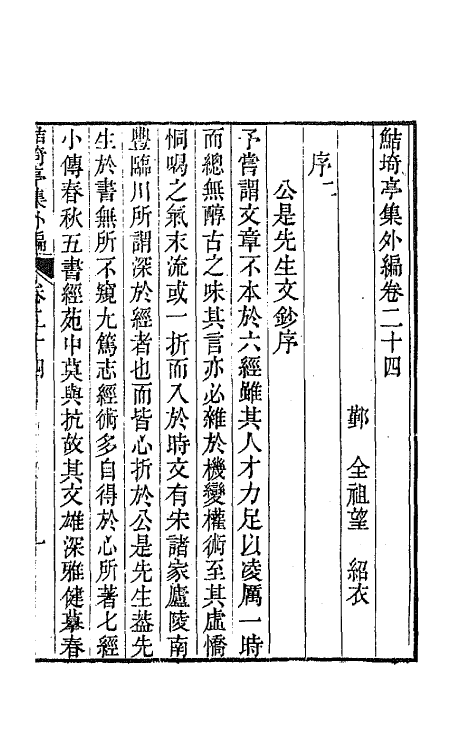 鮚埼亭集外編卷二十四
鄞 全祖望 紹衣
序二
公是先生文鈔序
予嘗謂文章不本於六經雖其人才力足以凌厲一時
而總無醇古之味其言亦必雜於機變權術至其虛憍
恫喝之氣末流或一折而入於時文有宋諸家廬陵南
豐臨川所謂深於經者也而皆心折於公是先生葢先
生於書無所不窺尤篤志經術多自得於心所著七經
小傳春秋五書經苑中莫與抗故其文雄深雅健摹春
鮚埼亭集外編 卷二十四